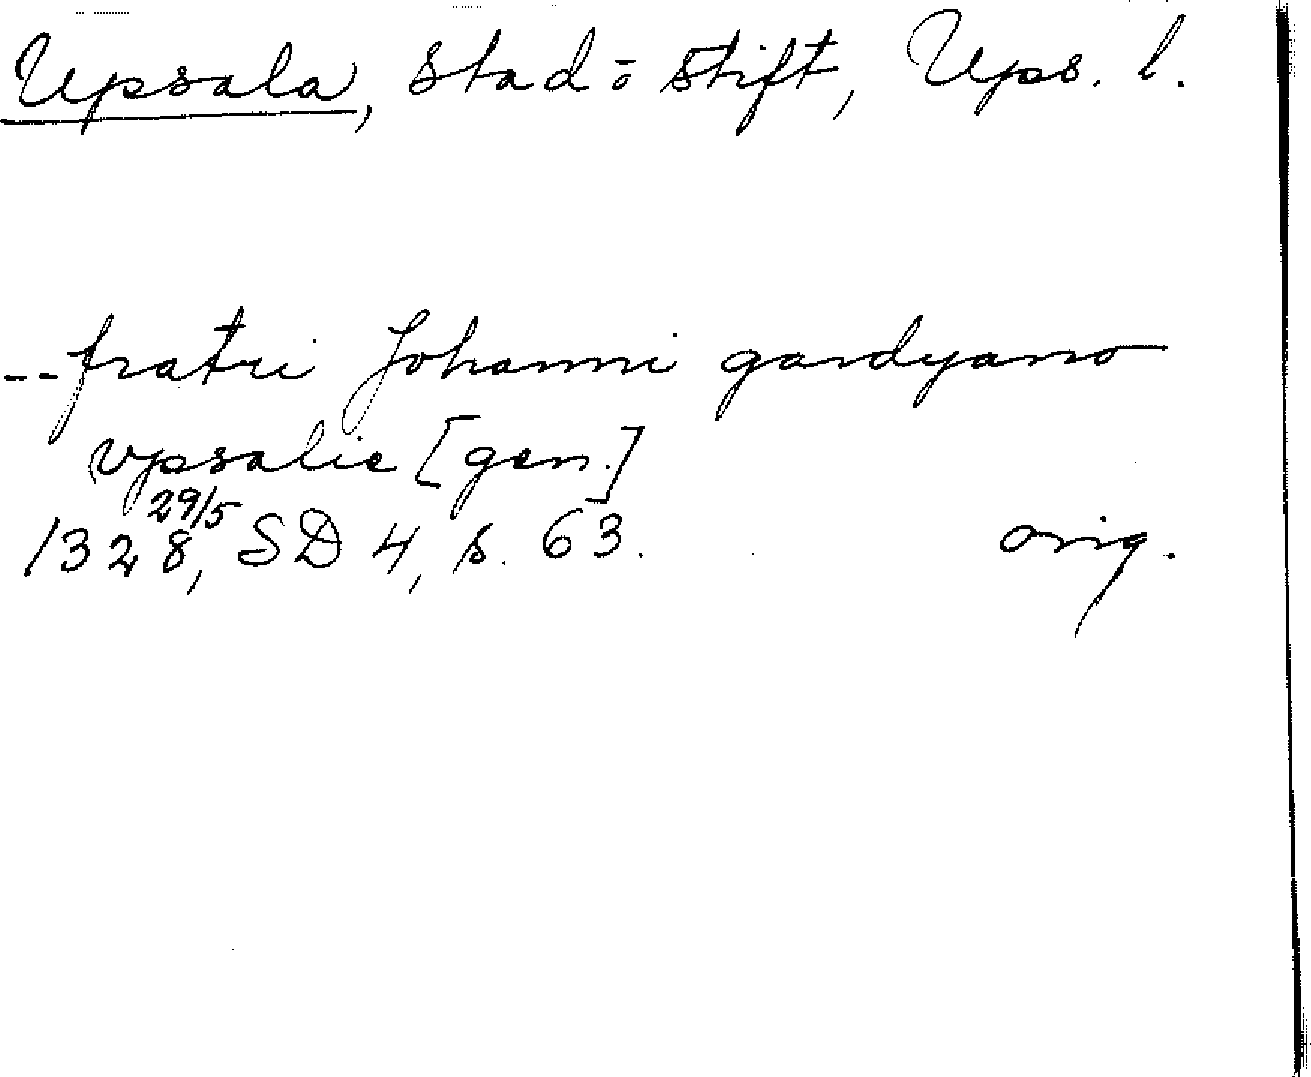 Upsala, stad o stift, Ups. l.
-- fratri Johanni gardyano
vpsalie [gen.]
29/5
1328, SD 4, s. 63. orig.